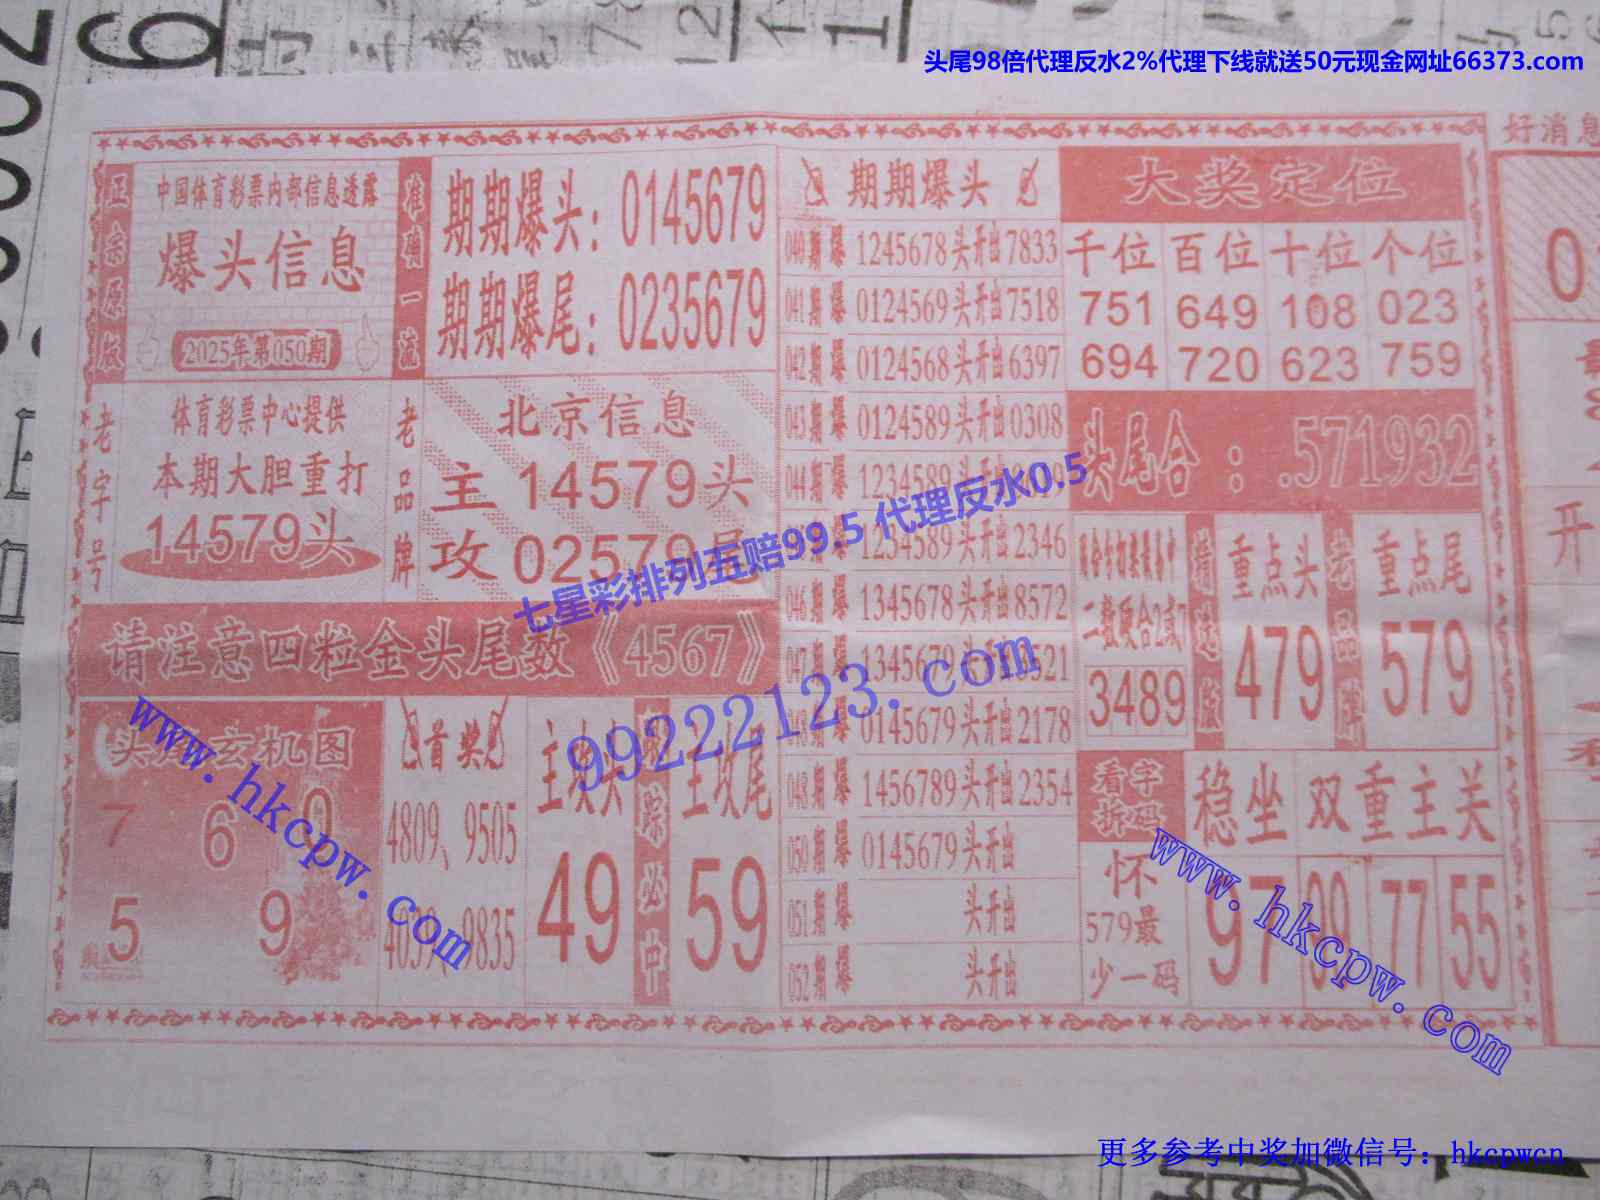 头尾98倍代理反水2%代理下线就送50元现金网址66373.com
好消息
正宗原版
中国体育彩票内部信息透露
爆头信息
2025年第050期
准确一流
期期爆头：0145679
期期爆尾：0235679
老字号
体育彩票中心提供
本期大胆重打
14579头
老品牌
北京信息
主14579头
攻02579尾
请注意四粒金头尾数《4567》
头尾玄机图
7 6 0
5 9
首奖
4809、9505
4039、9835
主攻头
49
跟踪必中
主攻尾
59
期期爆头
040期爆 1245678头开出7833
041期爆 0124569头开出7518
042期爆 0124568头开出6397
043期爆 0124589头开出0308
044期爆 1234589头开出
1234589头开出2346
046期爆 1345678头开出8572
047期爆 1345679头开出
048期爆 0145679头开出2178
048期爆 1456789头开出2354
050期爆 0145679头开出
051期爆 头开出
052期爆 头开出
大奖定位
千位 百位 十位 个位
751 649 108 023
694 720 623 759
头尾合：.571932
二数更合2或7
3489
精选版
重点头
479
老品牌
重点尾
579
看字拆码
怀
579最
少一码
稳坐
97
双重主关
99 77 55
开
七星彩排列五赔99.5 代理反水0.5
99222123.com
www.hkcpw.com
www.hkcpw.com
更多参考中奖加微信号：hkcpwcn